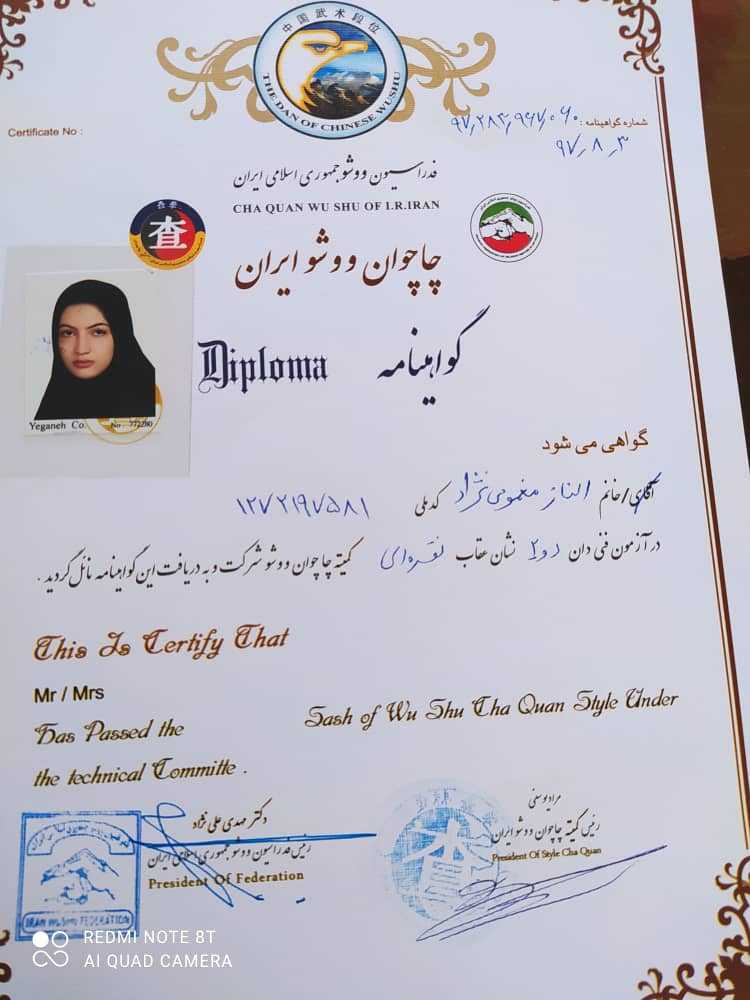 中国武术段位
THE DAN OF CHINESE WUSHU
Certificate No :
شماره گواهینامه : ۹۷,۲۸۳,۹۶۷,۰۶۰
۹۷,۸,۳
فدراسیون ووشو جمهوری اسلامی ایران
CHA QUAN WU SHU OF I.R.IRAN
查
چاچوان ووشو ایران
Diploma گواهینامه
Yeganeh Co. No. 772780
گواهی می شود
آقای/خانم الناز نژاد کدملی ۱۲۷۲۱۹۷۵۸۱
در آزمون فنی دان دو ۲ نشان عقاب نقره‌ای کمیته چاچوان ووشو شرکت و به دریافت این گواهینامه نائل گردید .
This Is Certify That
Mr / Mrs
Has Passed the Sash of Wu Shu Cha Quan Style Under
the technical Committe .
دکتر مهدی علی نژاد
رئیس فدراسیون ووشو جمهوری اسلامی ایران
President Of Federation
مراد یوسفی
رئیس کمیته چاچوان ووشو ایران
President Of Style Cha Quan
查
IRAN WUSHU FEDERATION
REDMI NOTE 8T
AI QUAD CAMERA